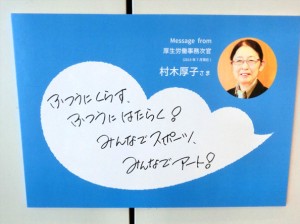 Message from
厚生労働事務次官
村木厚子さま
ふつうにくらす、
ふつうにはたらく!
みんなでスポーツ、
みんなでアート!